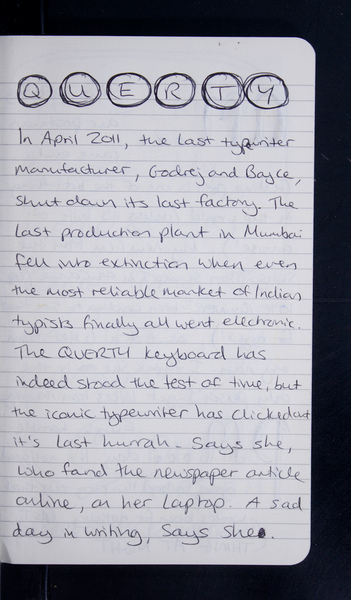 QUERTY
In April 2011, the last typwriter
manufacturer, Godrej and Bayce,
shut down its last factory. The
last production plant in Mumbai
fell into extinction when even
the most reliable market of Indian
typists finally all went electronic.
The QUERTY keyboard has
indeed stood the test of time, but
the iconic typewriter has clicked out
it's last hurrah - Says she,
who found the newspaper article
online, on her laptop. A sad
day in writing, Says she.